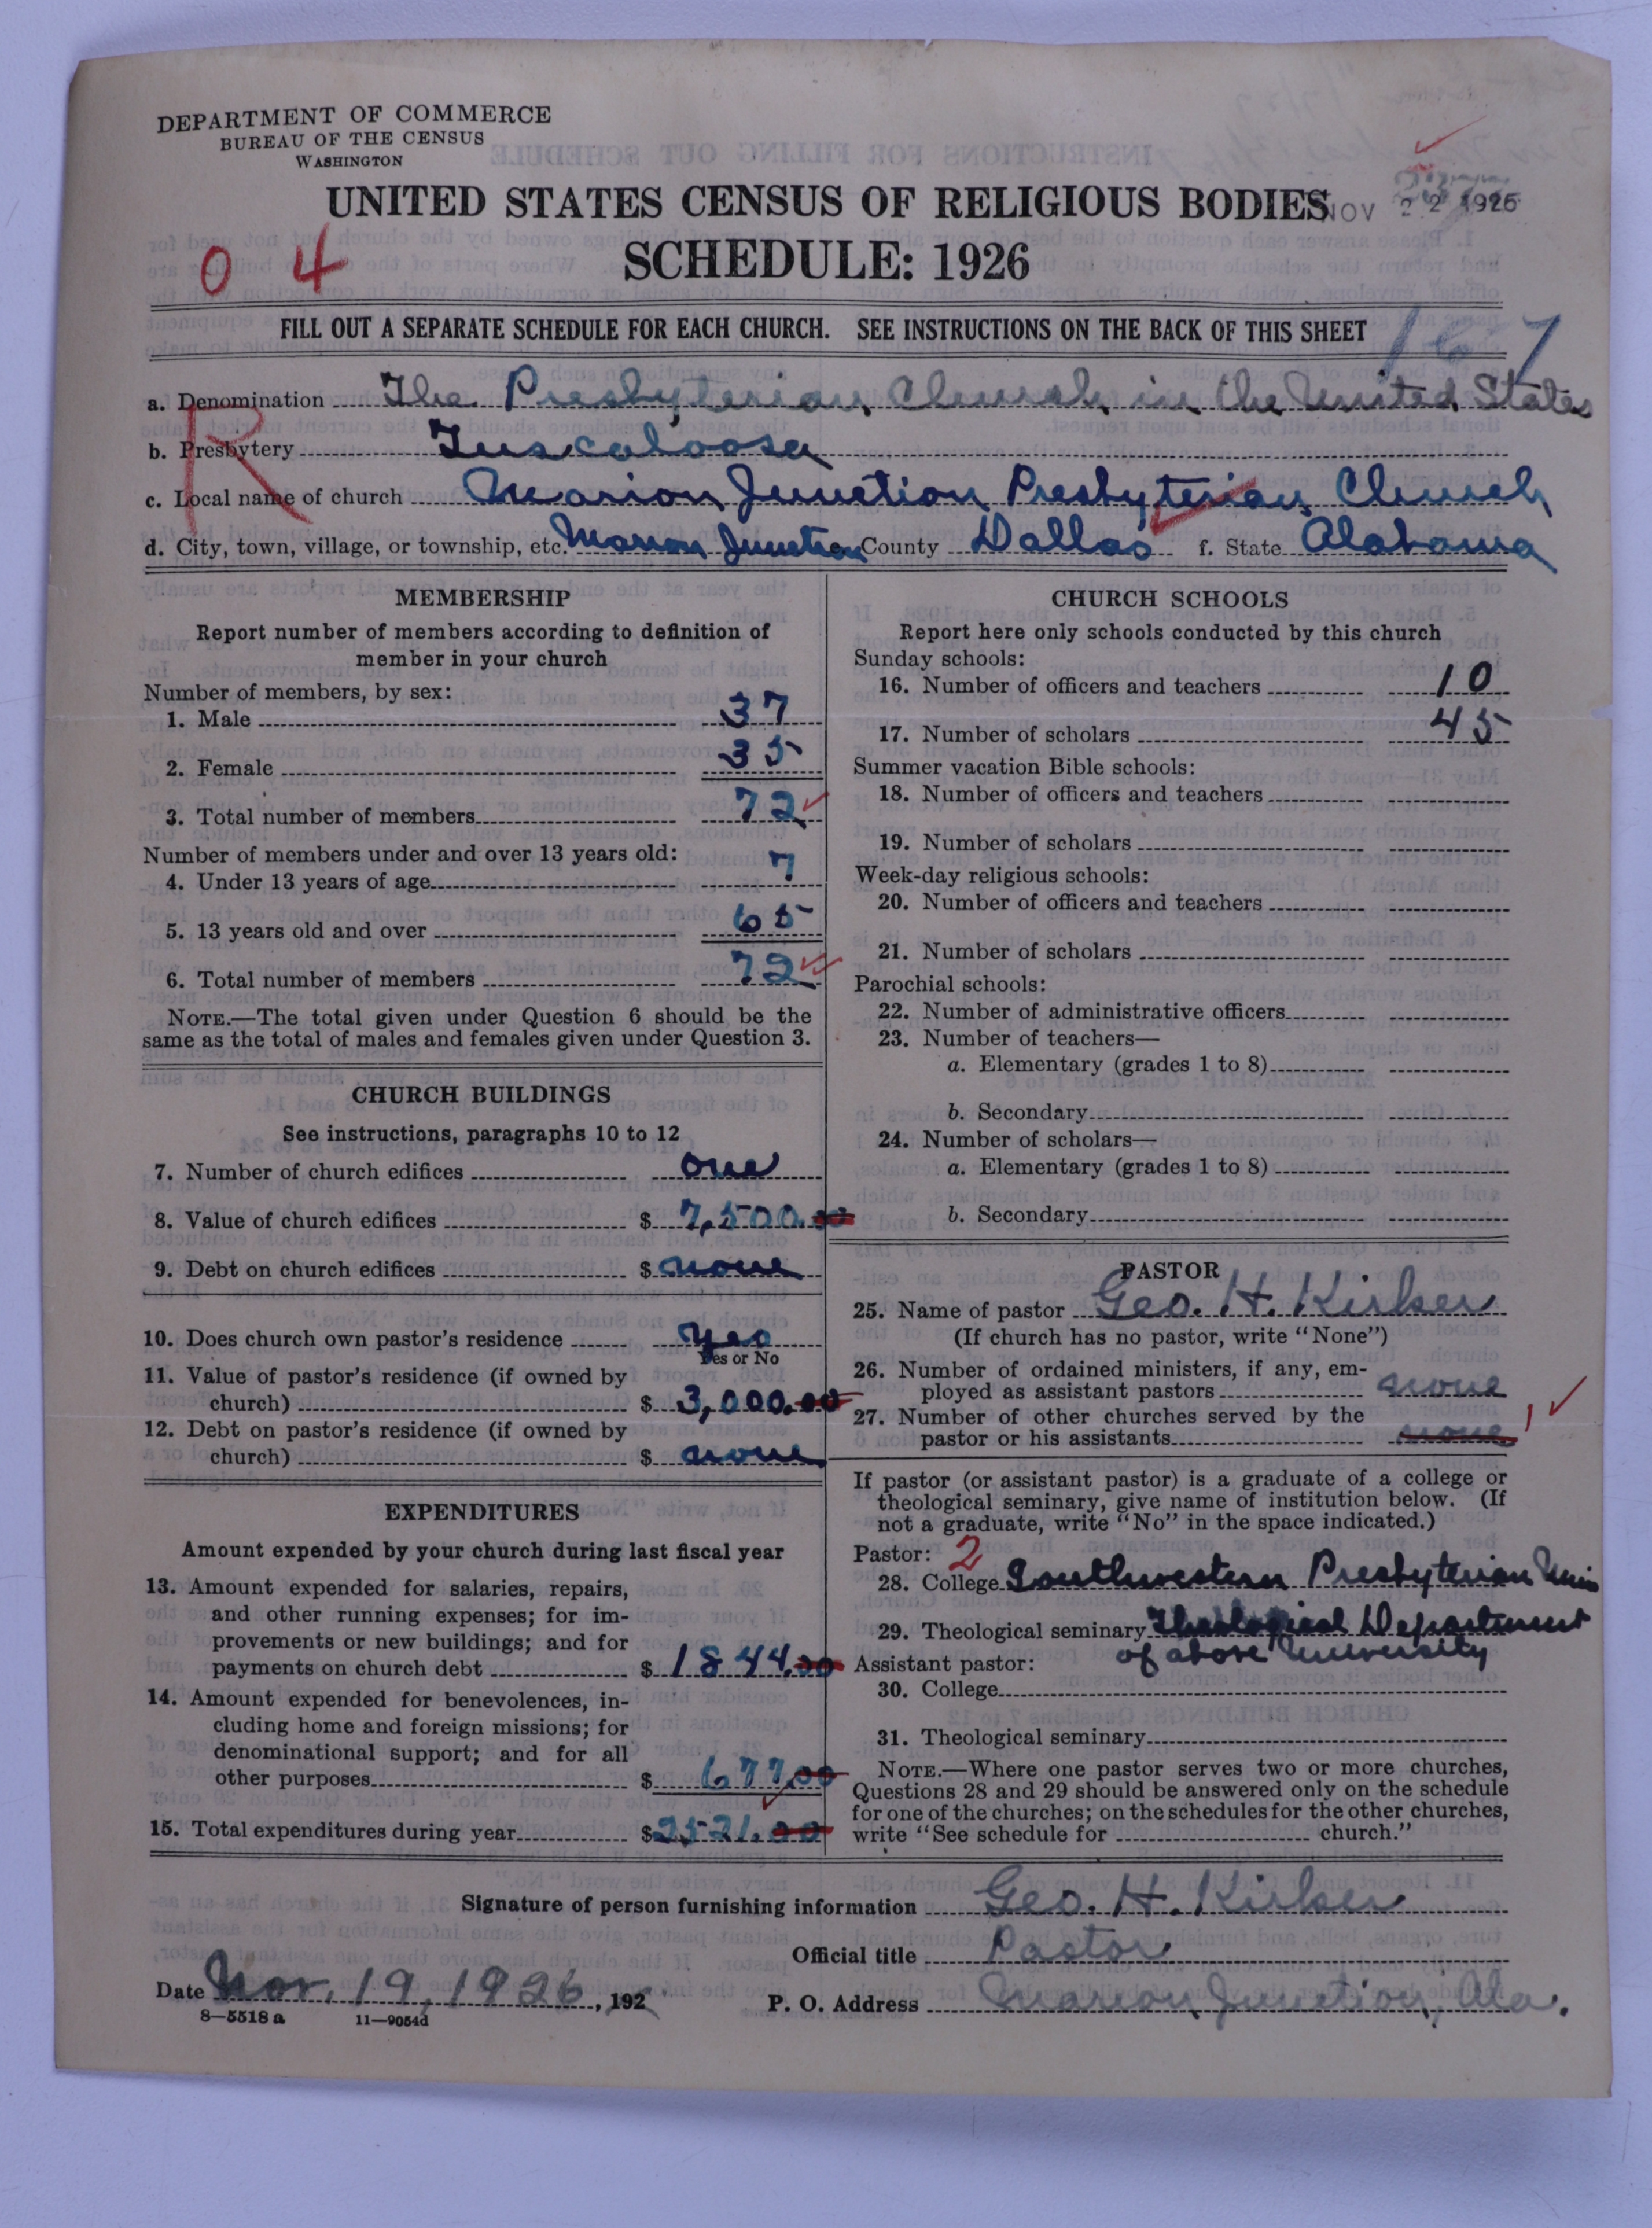 DEPARTMENT OF COMMERCE
BUREAU OF THE CENSUS
WASHINGTON
UNITED STATES CENSUS OF RELIGIOUS BODIES
NOV 22 1926
SCHEDULE: 1926
0 4
FILL OUT A SEPARATE SCHEDULE FOR EACH CHURCH. SEE INSTRUCTIONS ON THE BACK OF THIS SHEET
167
a. Denomination The Presbyterian Church in the United States
b. Presbytery Tuscaloosa
R
c. Local name of church Marion Junction Presbyterian Church
d. City, town, village, or township, etc. Marion Junction County Dallas f. State Alabama
MEMBERSHIP
Report number of members according to definition of
member in your church
Number of members, by sex:
1. Male 37
2. Female 35
3. Total number of members 72
Number of members under and over 13 years old:
4. Under 13 years of age 7
5. 13 years old and over 65
6. Total number of members 72
NOTE.—The total given under Question 6 should be the
same as the total of males and females given under Question 3.
CHURCH BUILDINGS
See instructions, paragraphs 10 to 12
7. Number of church edifices one
8. Value of church edifices $ 7,500.00
9. Debt on church edifices $ none
10. Does church own pastor's residence Yes
Yes or No
11. Value of pastor's residence (if owned by
church) $ 3,000.00
12. Debt on pastor's residence (if owned by
church) $ none
EXPENDITURES
Amount expended by your church during last fiscal year
13. Amount expended for salaries, repairs,
and other running expenses; for im-
provements or new buildings; and for
payments on church debt $ 1844.00
14. Amount expended for benevolences, in-
cluding home and foreign missions; for
denominational support; and for all
other purposes $ 677.00
15. Total expenditures during year $ 2521.00
CHURCH SCHOOLS
Report here only schools conducted by this church
Sunday schools:
16. Number of officers and teachers 10
17. Number of scholars 45
Summer vacation Bible schools:
18. Number of officers and teachers
19. Number of scholars
Week-day religious schools:
20. Number of officers and teachers
21. Number of scholars
Parochial schools:
22. Number of administrative officers
23. Number of teachers—
a. Elementary (grades 1 to 8)
b. Secondary
24. Number of scholars—
a. Elementary (grades 1 to 8)
b. Secondary
PASTOR
25. Name of pastor Geo. H. Kirker
(If church has no pastor, write "None")
26. Number of ordained ministers, if any, em-
ployed as assistant pastors none
27. Number of other churches served by the
pastor or his assistants none 1
If pastor (or assistant pastor) is a graduate of a college or
theological seminary, give name of institution below. (If
not a graduate, write "No" in the space indicated.)
Pastor: 2
28. College Southwestern Presbyterian Univ
29. Theological seminary Theological Department
of above University
Assistant pastor:
30. College
31. Theological seminary
NOTE.—Where one pastor serves two or more churches,
Questions 28 and 29 should be answered only on the schedule
for one of the churches; on the schedules for the other churches,
write "See schedule for church."
Signature of person furnishing information Geo. H. Kirker
Official title Pastor
Date Nov. 19, 1926, 192
P. O. Address Marion Junction, Ala.
8—5518 a 11—9054d